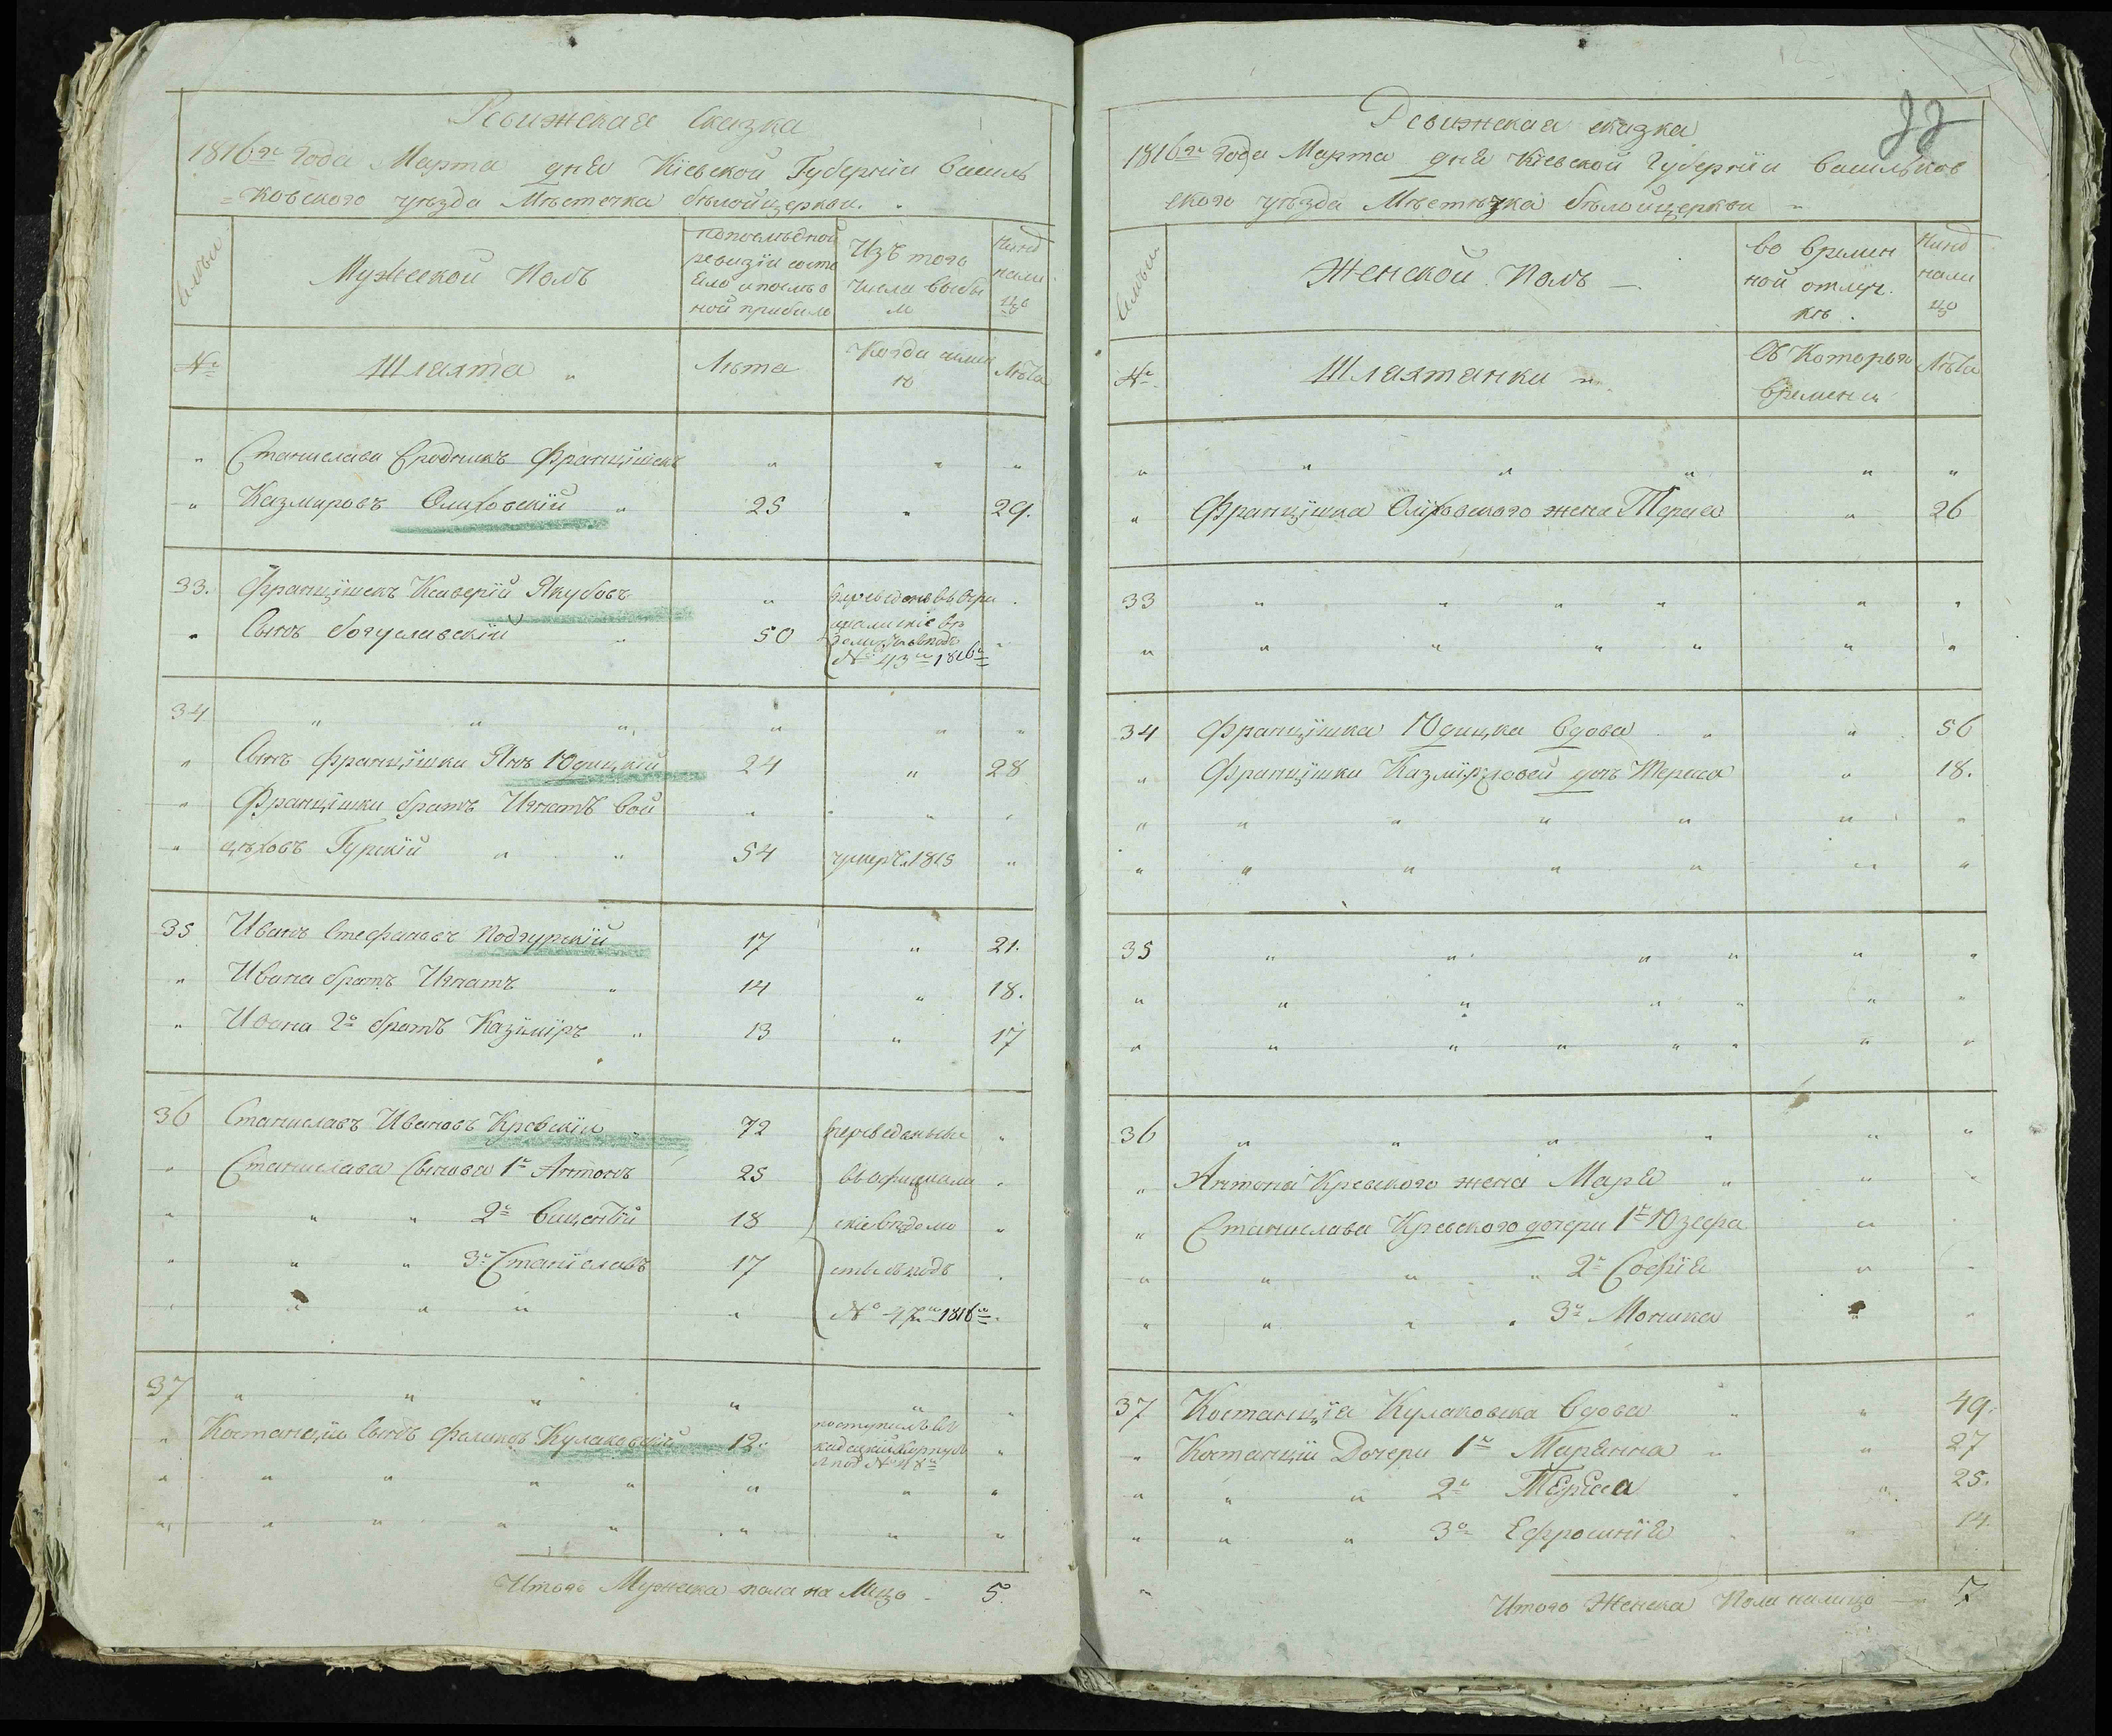 Ревижская сказка
1816го Года Марта дня Кіевской Губерніи Василь
=ковского уѣзда Мѣстечка бѣлойцеркви.
Семьи
Мужеской Полъ
попослѣдной
ревизіи состо
яло и послѣ о
ной прибыло
Изъ того
числа выбы
ло
нынѣ
нали
цо
№
Шляхта
Лѣта
Когда имен
но
Лѣта
" Станислава Сродникъ Францїшекъ " " "
" Казмировъ Олиховскїй " 25 " 29.
33. Францїшекъ Ксаверїй Якубовъ "
" Сынъ богуславскїй " 50
№ 43м 1816го
34 " " " " " "
" Сынъ францїшки Янъ Юдицкїй 24 " 28
" Францїшки братъ Игнатъ Вой " " "
" цѣховъ Гурскїй " " 54 умеръ 1815 "
35 Иванъ Стефановъ Подгурскїй 17 " 21.
" Ивана братъ Игнатъ " 14 " 18.
" Ивана 2й братъ Казїмїръ " 13 " 17
36 Станиславъ Ивановъ Кревскїй " 72 переведены "
" Станислава Сынова 1й Антонъ 25 въ офицiали "
" " " 2й Вицентїй 18 скіе вѣдомо "
" " " 3й Станїславъ 17 сти подъ "
" " " " " № 47м 1816го "
37 " " " " " "
" Костанцїи Сынъ Феликсъ Кулаковскїй 12. поступилъ въ
кадецкій Корпусъ
под № 48м
" " " " " " " "
" " " " " " " "
Итого Мужеска пола на Лицо - 5.
Ревижская сказка
1816го года Марта дня Кіевской Губерніи Васильков
ского уѣзда Мѣстѣчка бѣлойцеркви "
Семьи
Женской Полъ —
во времен
ной отлуч.
кѣ.
нынѣ
нали
цо
№
Шляхтянки "
Съ Которого
времени
Лѣта
" " " " " "
" Францїшка Олиховского жена Тереса " 26
33 " " " " " "
" " " " " " "
34 Францїшка Юдицка Вдова " " 56
" Францїшки Казмїровой дочь Тереса " 18.
" " " " " " "
" " " " " " "
35 " " " " " "
" " " " " " "
" " " " " " " "
36 " " " " " "
" Антона Кревского жена Марья " " "
" Станислава Кревского дочери 1я Юзефа " "
" " " " 2я Софїя " "
" " " " 3я Моника " "
37 Костанцїя Кулаковска Вдова " " 49.
" Костанцїи Дочери 1я Марянна " " 27
" " " 2я Тереса " " 25.
" " " 3я Ефросинїя " " 14.
Итого Женска Пола налицо — 7